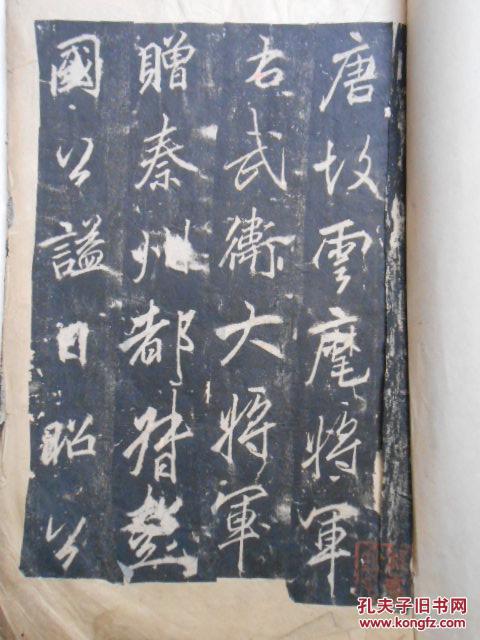 唐故雲麾將軍
右武衛大將軍
贈秦州都督彭
國公謚曰昭公
孔夫子旧书网
www.kongfz.com